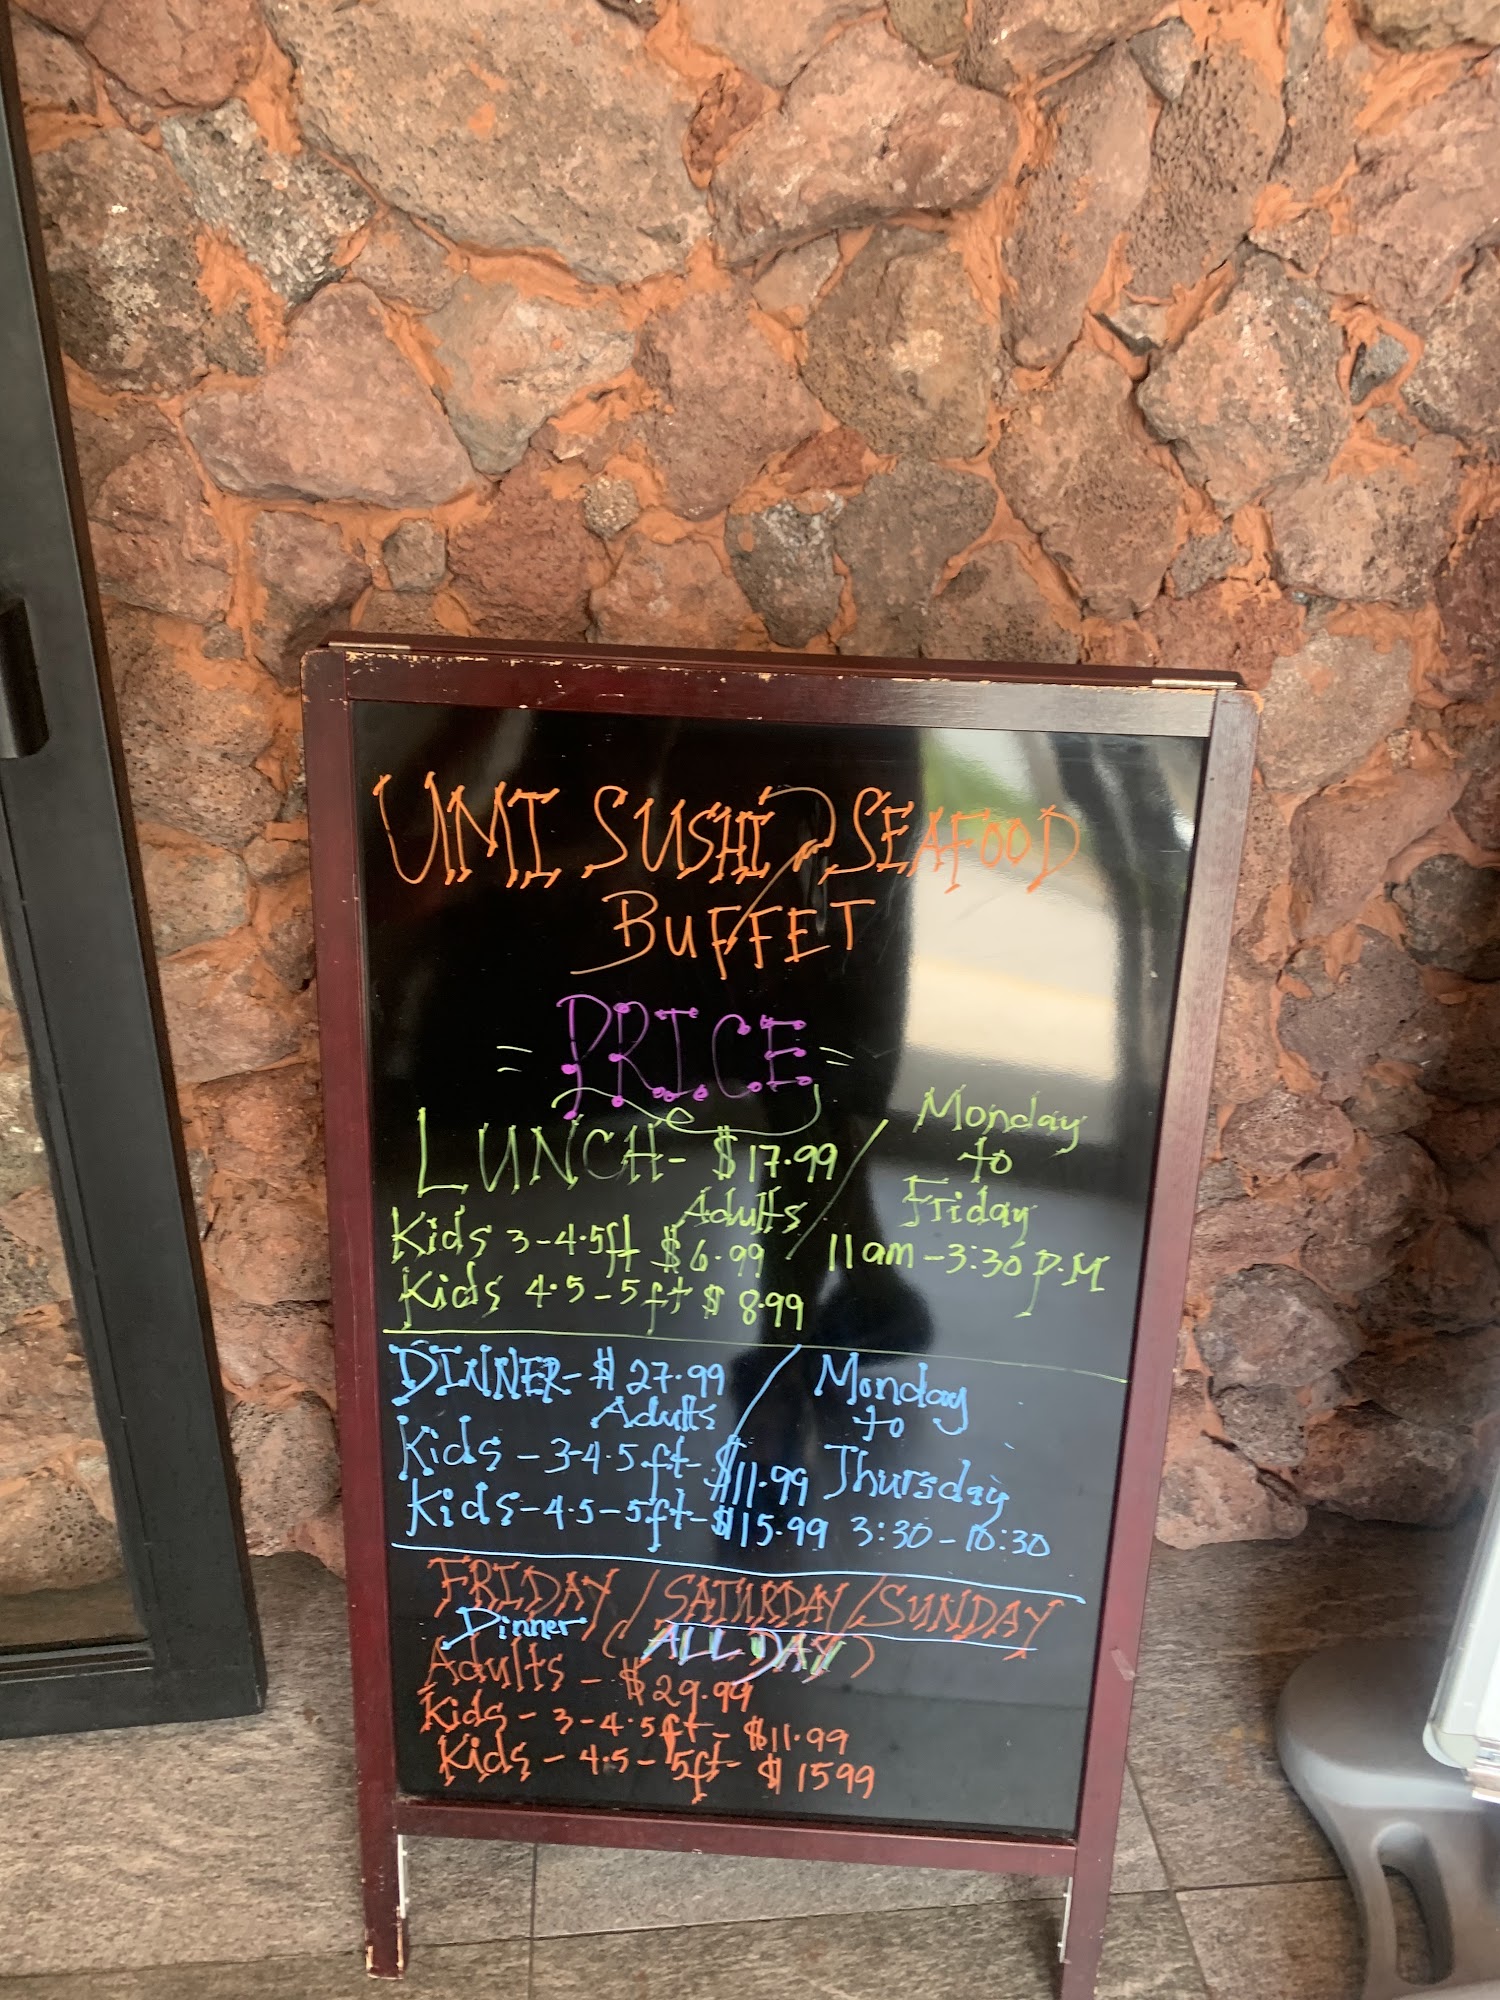 UMI SUSHI & SEAFOOD
BUFFET
= PRICE =
LUNCH - $17.99 / Monday
Adults to
Kids 3-4.5ft $6.99 Friday
Kids 4.5-5ft $8.99 11am-3:30 P.M
DINNER - $27.99 / Monday
Adults to
Kids - 3-4.5ft - $11.99 Thursday
Kids - 4.5-5ft - $15.99 3:30-10:30
FRIDAY / SATURDAY / SUNDAY
Dinner (ALL DAY)
Adults - $29.99
Kids - 3-4.5ft - $11.99
Kids - 4.5-5ft - $1599